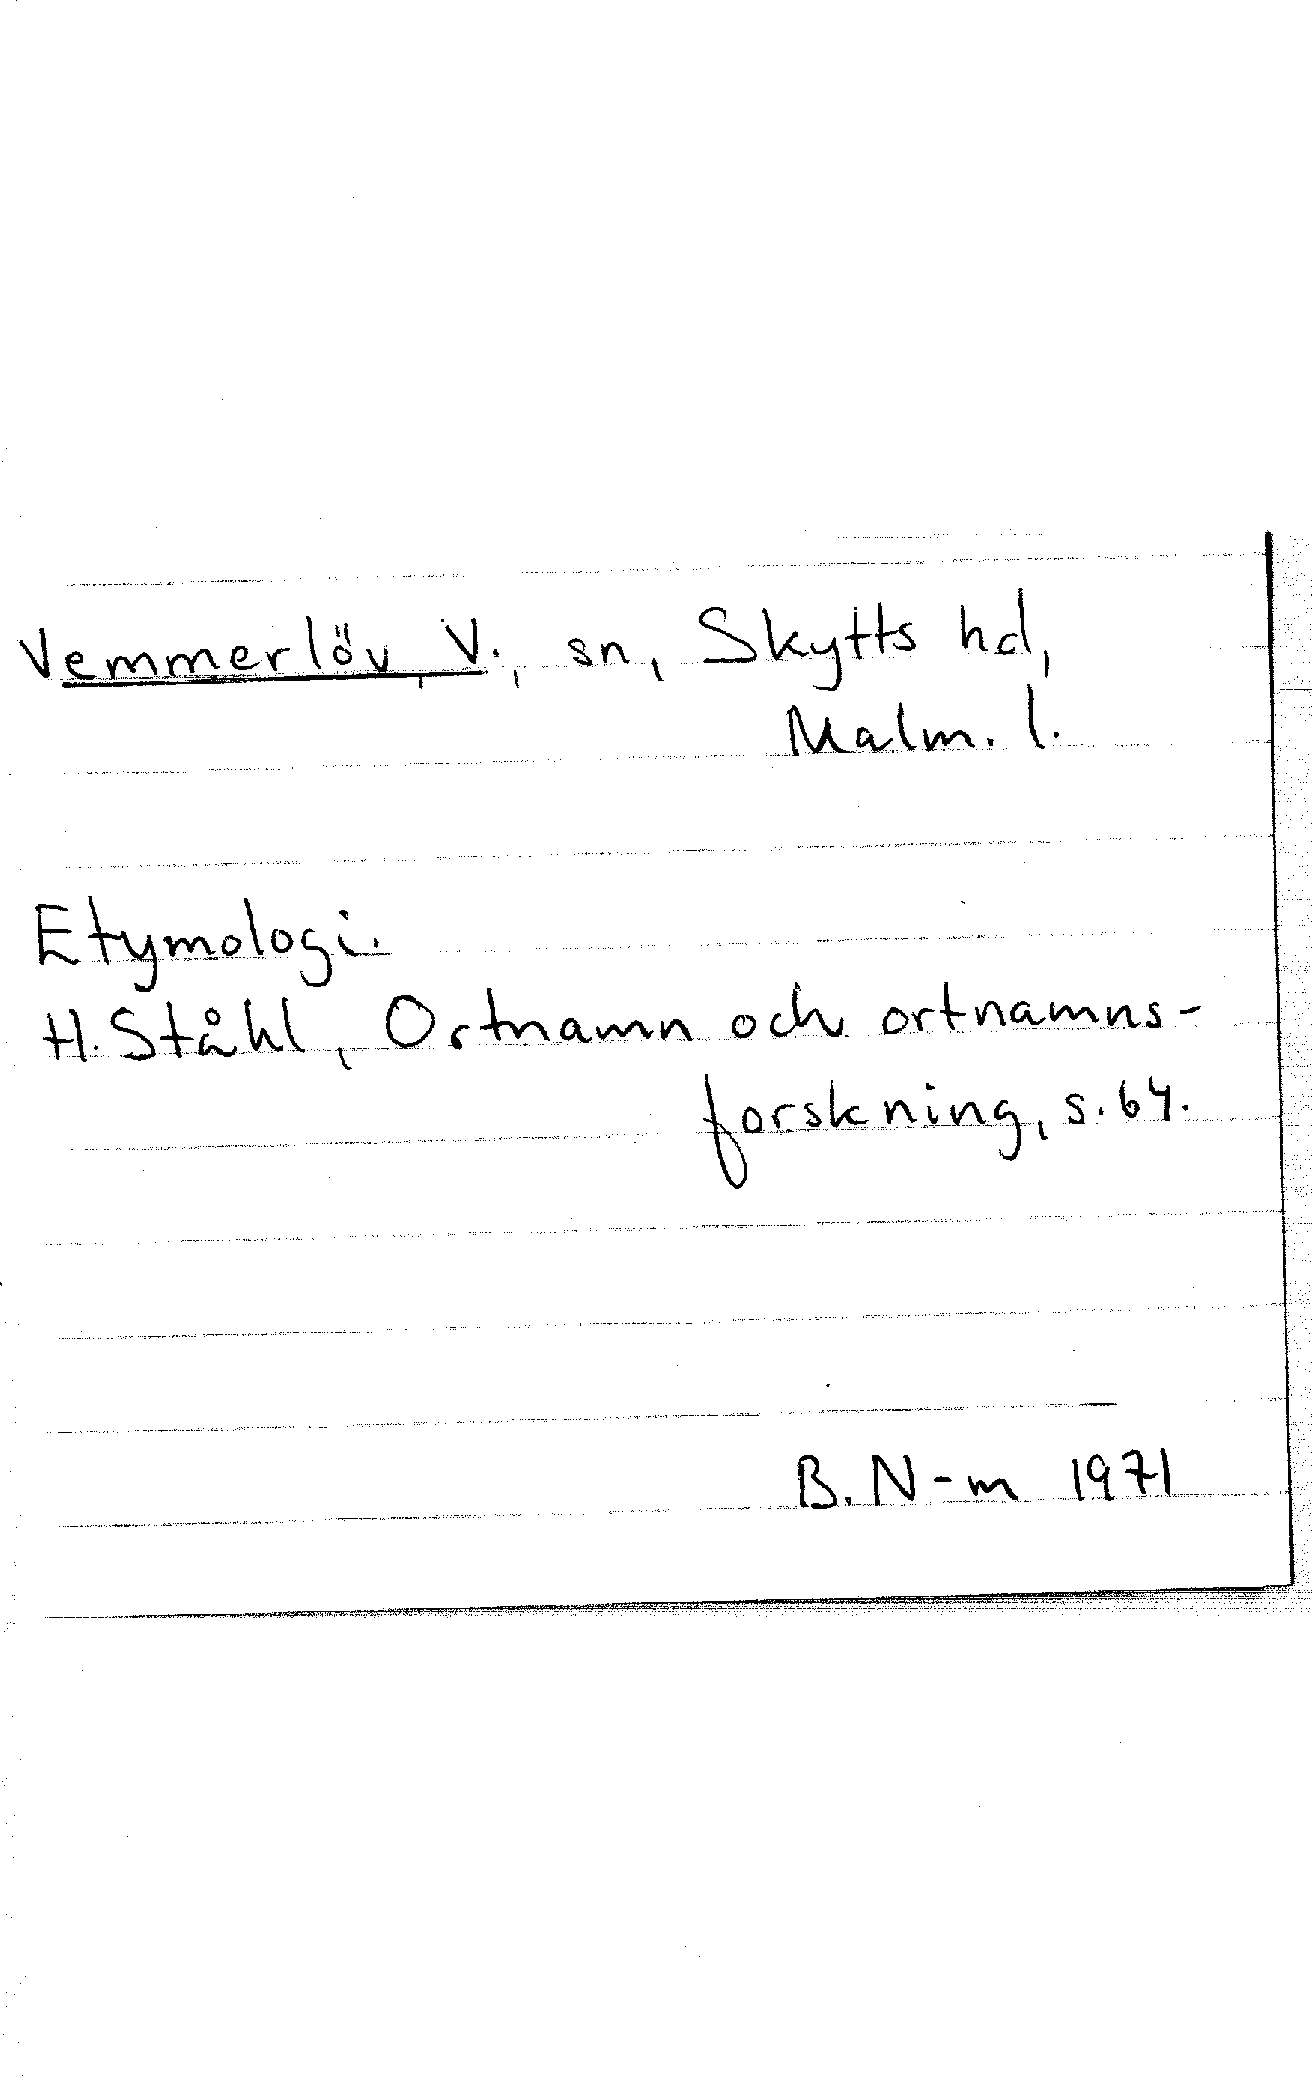 Vemmerlöv, V., sn, Skytts hd,
Malm. l.
Etymologi.
H. Ståhl, Ortnamn och ortnamns-
forskning, s. 64.
B. N-m 1971